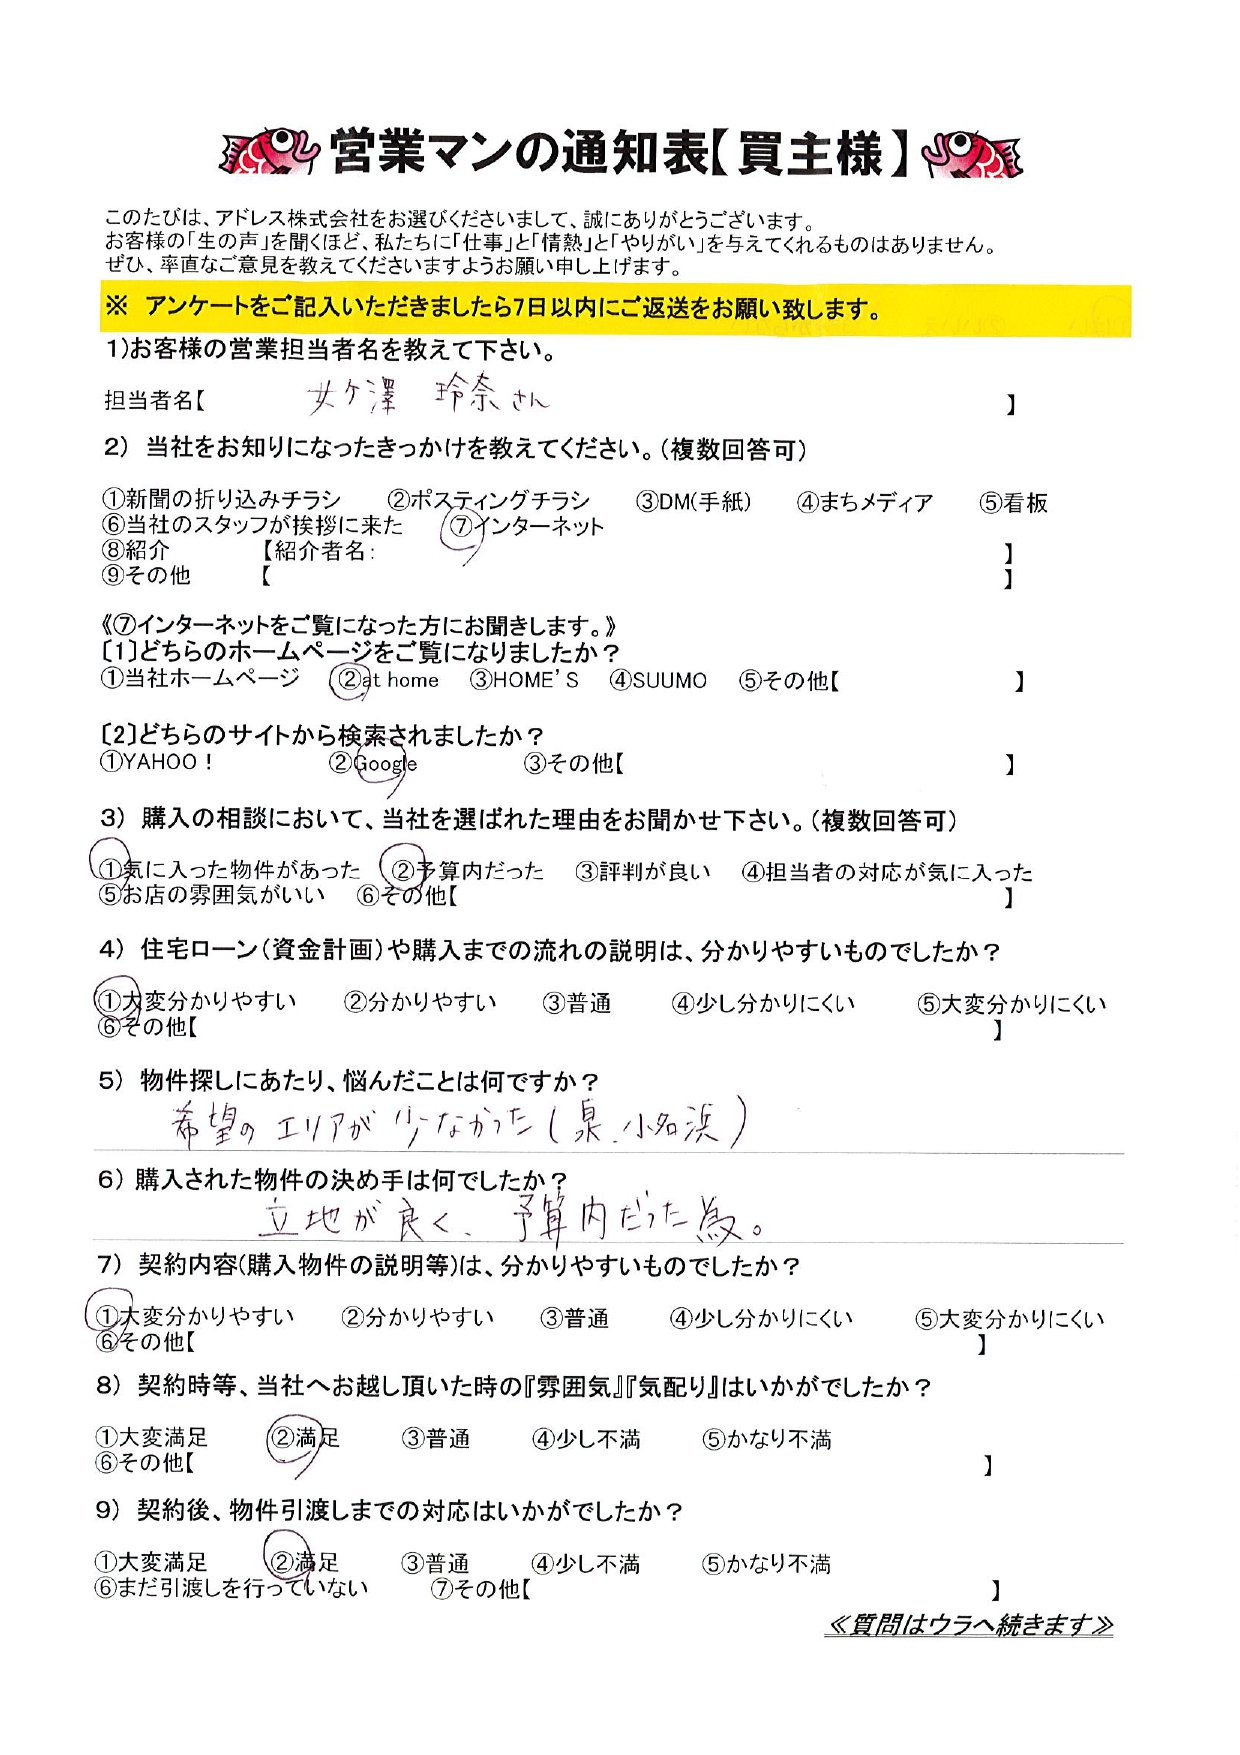 営業マンの通知表【買主様】
このたびは、アドレス株式会社をお選びくださいまして、誠にありがとうございます。
お客様の「生の声」を聞くほど、私たちに「仕事」と「情熱」と「やりがい」を与えてくれるものはありません。
ぜひ、率直なご意見を教えてくださいますようお願い申し上げます。
※ アンケートをご記入いただきましたら7日以内にご返送をお願い致します。
1)お客様の営業担当者名を教えて下さい。
担当者名【 女ケ澤 玲奈さん 】
2) 当社をお知りになったきっかけを教えてください。(複数回答可)
①新聞の折り込みチラシ ②ポスティングチラシ ③DM(手紙) ④まちメディア ⑤看板
⑥当社のスタッフが挨拶に来た ⑦インターネット
⑧紹介 【紹介者名: 】
⑨その他 【 】
《⑦インターネットをご覧になった方にお聞きします。》
〔1〕どちらのホームページをご覧になりましたか?
①当社ホームページ ②at home ③HOME'S ④SUUMO ⑤その他【 】
〔2〕どちらのサイトから検索されましたか?
①YAHOO! ②Google ③その他【 】
3) 購入の相談において、当社を選ばれた理由をお聞かせ下さい。(複数回答可)
①気に入った物件があった ②予算内だった ③評判が良い ④担当者の対応が気に入った
⑤お店の雰囲気がいい ⑥その他【 】
4) 住宅ローン(資金計画)や購入までの流れの説明は、分かりやすいものでしたか?
①大変分かりやすい ②分かりやすい ③普通 ④少し分かりにくい ⑤大変分かりにくい
⑥その他【 】
5) 物件探しにあたり、悩んだことは何ですか?
希望のエリアが少なかった(泉、小名浜)
6) 購入された物件の決め手は何でしたか?
立地が良く、予算内だった為。
7) 契約内容(購入物件の説明等)は、分かりやすいものでしたか?
①大変分かりやすい ②分かりやすい ③普通 ④少し分かりにくい ⑤大変分かりにくい
⑥その他【 】
8) 契約時等、当社へお越し頂いた時の『雰囲気』『気配り』はいかがでしたか?
①大変満足 ②満足 ③普通 ④少し不満 ⑤かなり不満
⑥その他【 】
9) 契約後、物件引渡しまでの対応はいかがでしたか?
①大変満足 ②満足 ③普通 ④少し不満 ⑤かなり不満
⑥まだ引渡しを行っていない ⑦その他【 】
≪質問はウラへ続きます≫